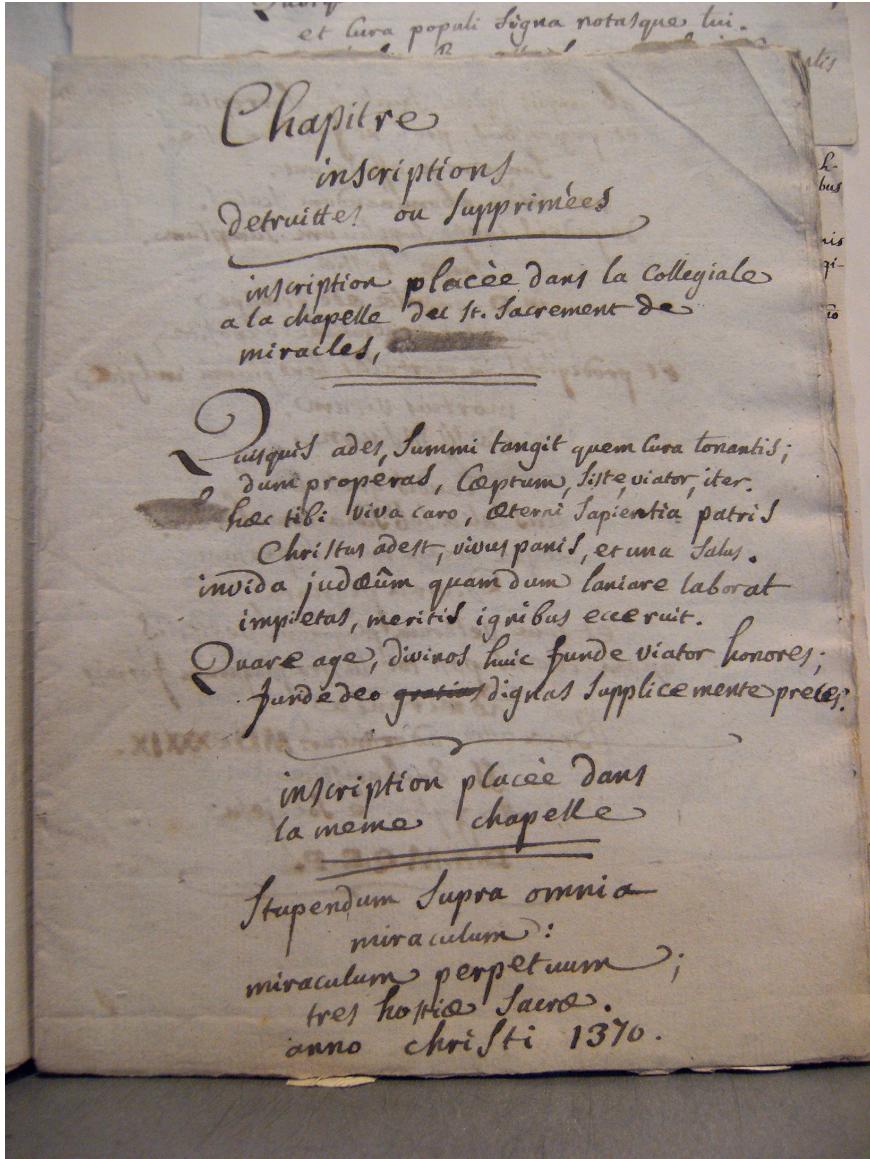 et Cura populi Signa notasque tui.
Chapitre
inscriptions
detruittes ou Supprimées
inscription placèe dans la Collegiale
a la chapelle du St. Sacrement de
miracles,
Quisquis ades, Summi tangit quem Cura tonantis;
dum properas, Cœptum, Siste, viator, iter.
hæc tibi viva caro, æterni Sapientia patris
Christus adest, vivus panis, et una Salus.
invida judæûm quamdum laniare laborat
impietas, meritis ignibus ecce ruit.
Quare age, divinos huic funde viator honores;
funde deo gratias dignas Supplice mente preces.
inscription placèe dans
la meme chapelle
Stupendum Supra omnia
miraculum:
miraculum perpetuum;
tres hostiæ Sacræ.
anno christi 1370.